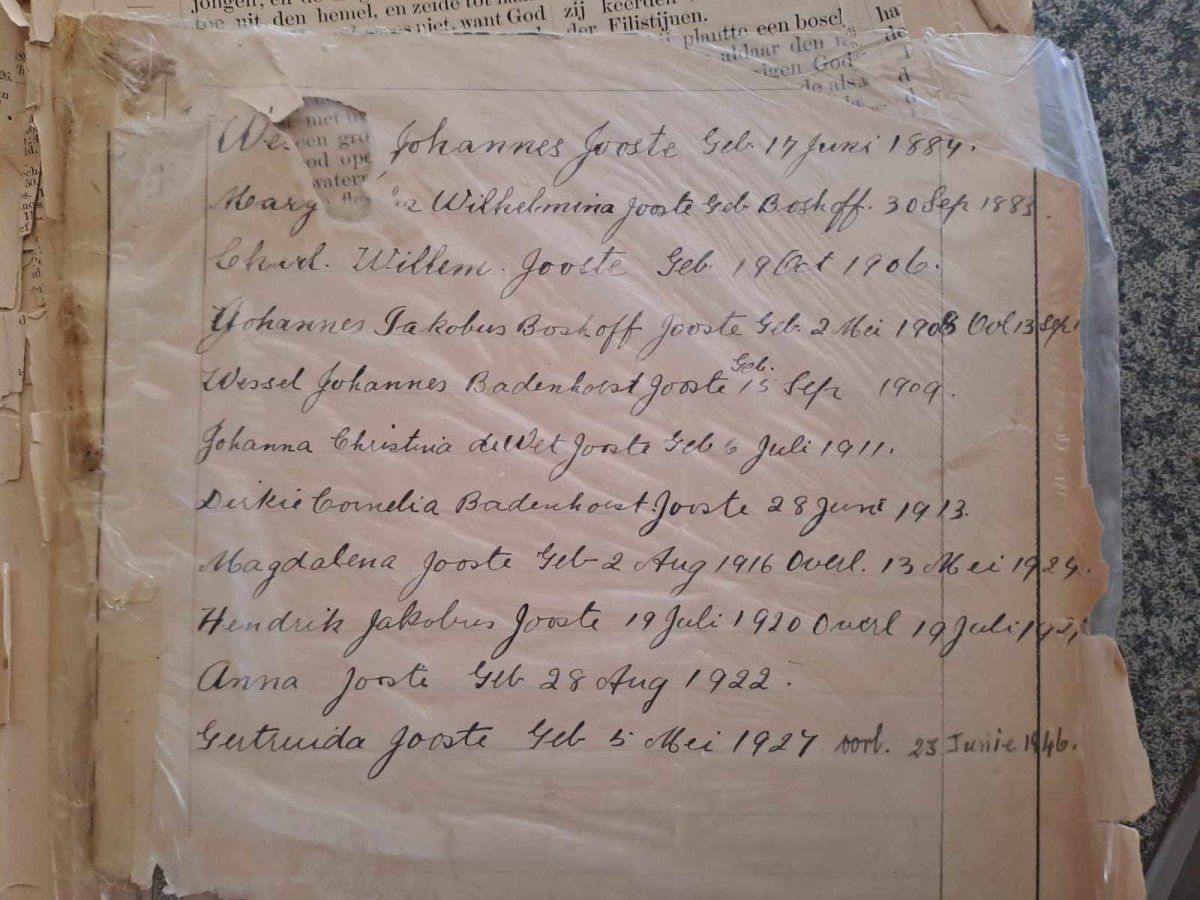 jongen, en de
toe uit den hemel, en zeide tot
niet, want God
zij keerden
der Filistijnen.
plantte een bosch
aldaar den
eigen God
de als
met
een gro
od ope
water
We Johannes Jooste Geb. 17 Juni 1884.
Wilhelmina Jooste Geb Boshoff. 30 Sep 1883
Charl. Willem. Jooste Geb. 19 Oct 1906.
Johannes Jakobus Boshoff Jooste Geb. 2 Mei 1908 Ovl 13 Sep
Wessel Johannes Badenhorst Jooste Geb. 15 Sep 1909.
Johanna Christina de Wet Jooste Geb 6 Juli 1911.
Dirkie Cornelia Badenhorst Jooste 28 Juni 1913.
Magdalena Jooste Geb 2 Aug 1916 Overl. 13 Mei 1924.
Hendrik Jakobus Jooste 19 Juli 1920 Overl 19 Juli
Anna Jooste Geb 28 Aug 1922.
Gertruida Jooste Geb 5 Mei 1927 oorl. 23 Junie 1946.